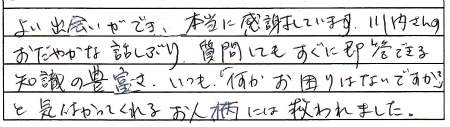 よい出会いができ、本当に感謝しています。川内さんの
おだやかな話しぶり、質問にもすぐに即答できる
知識の豊富さ、いつも「何かお困りはないですか」
と気づかってくれるお人柄には救われました。